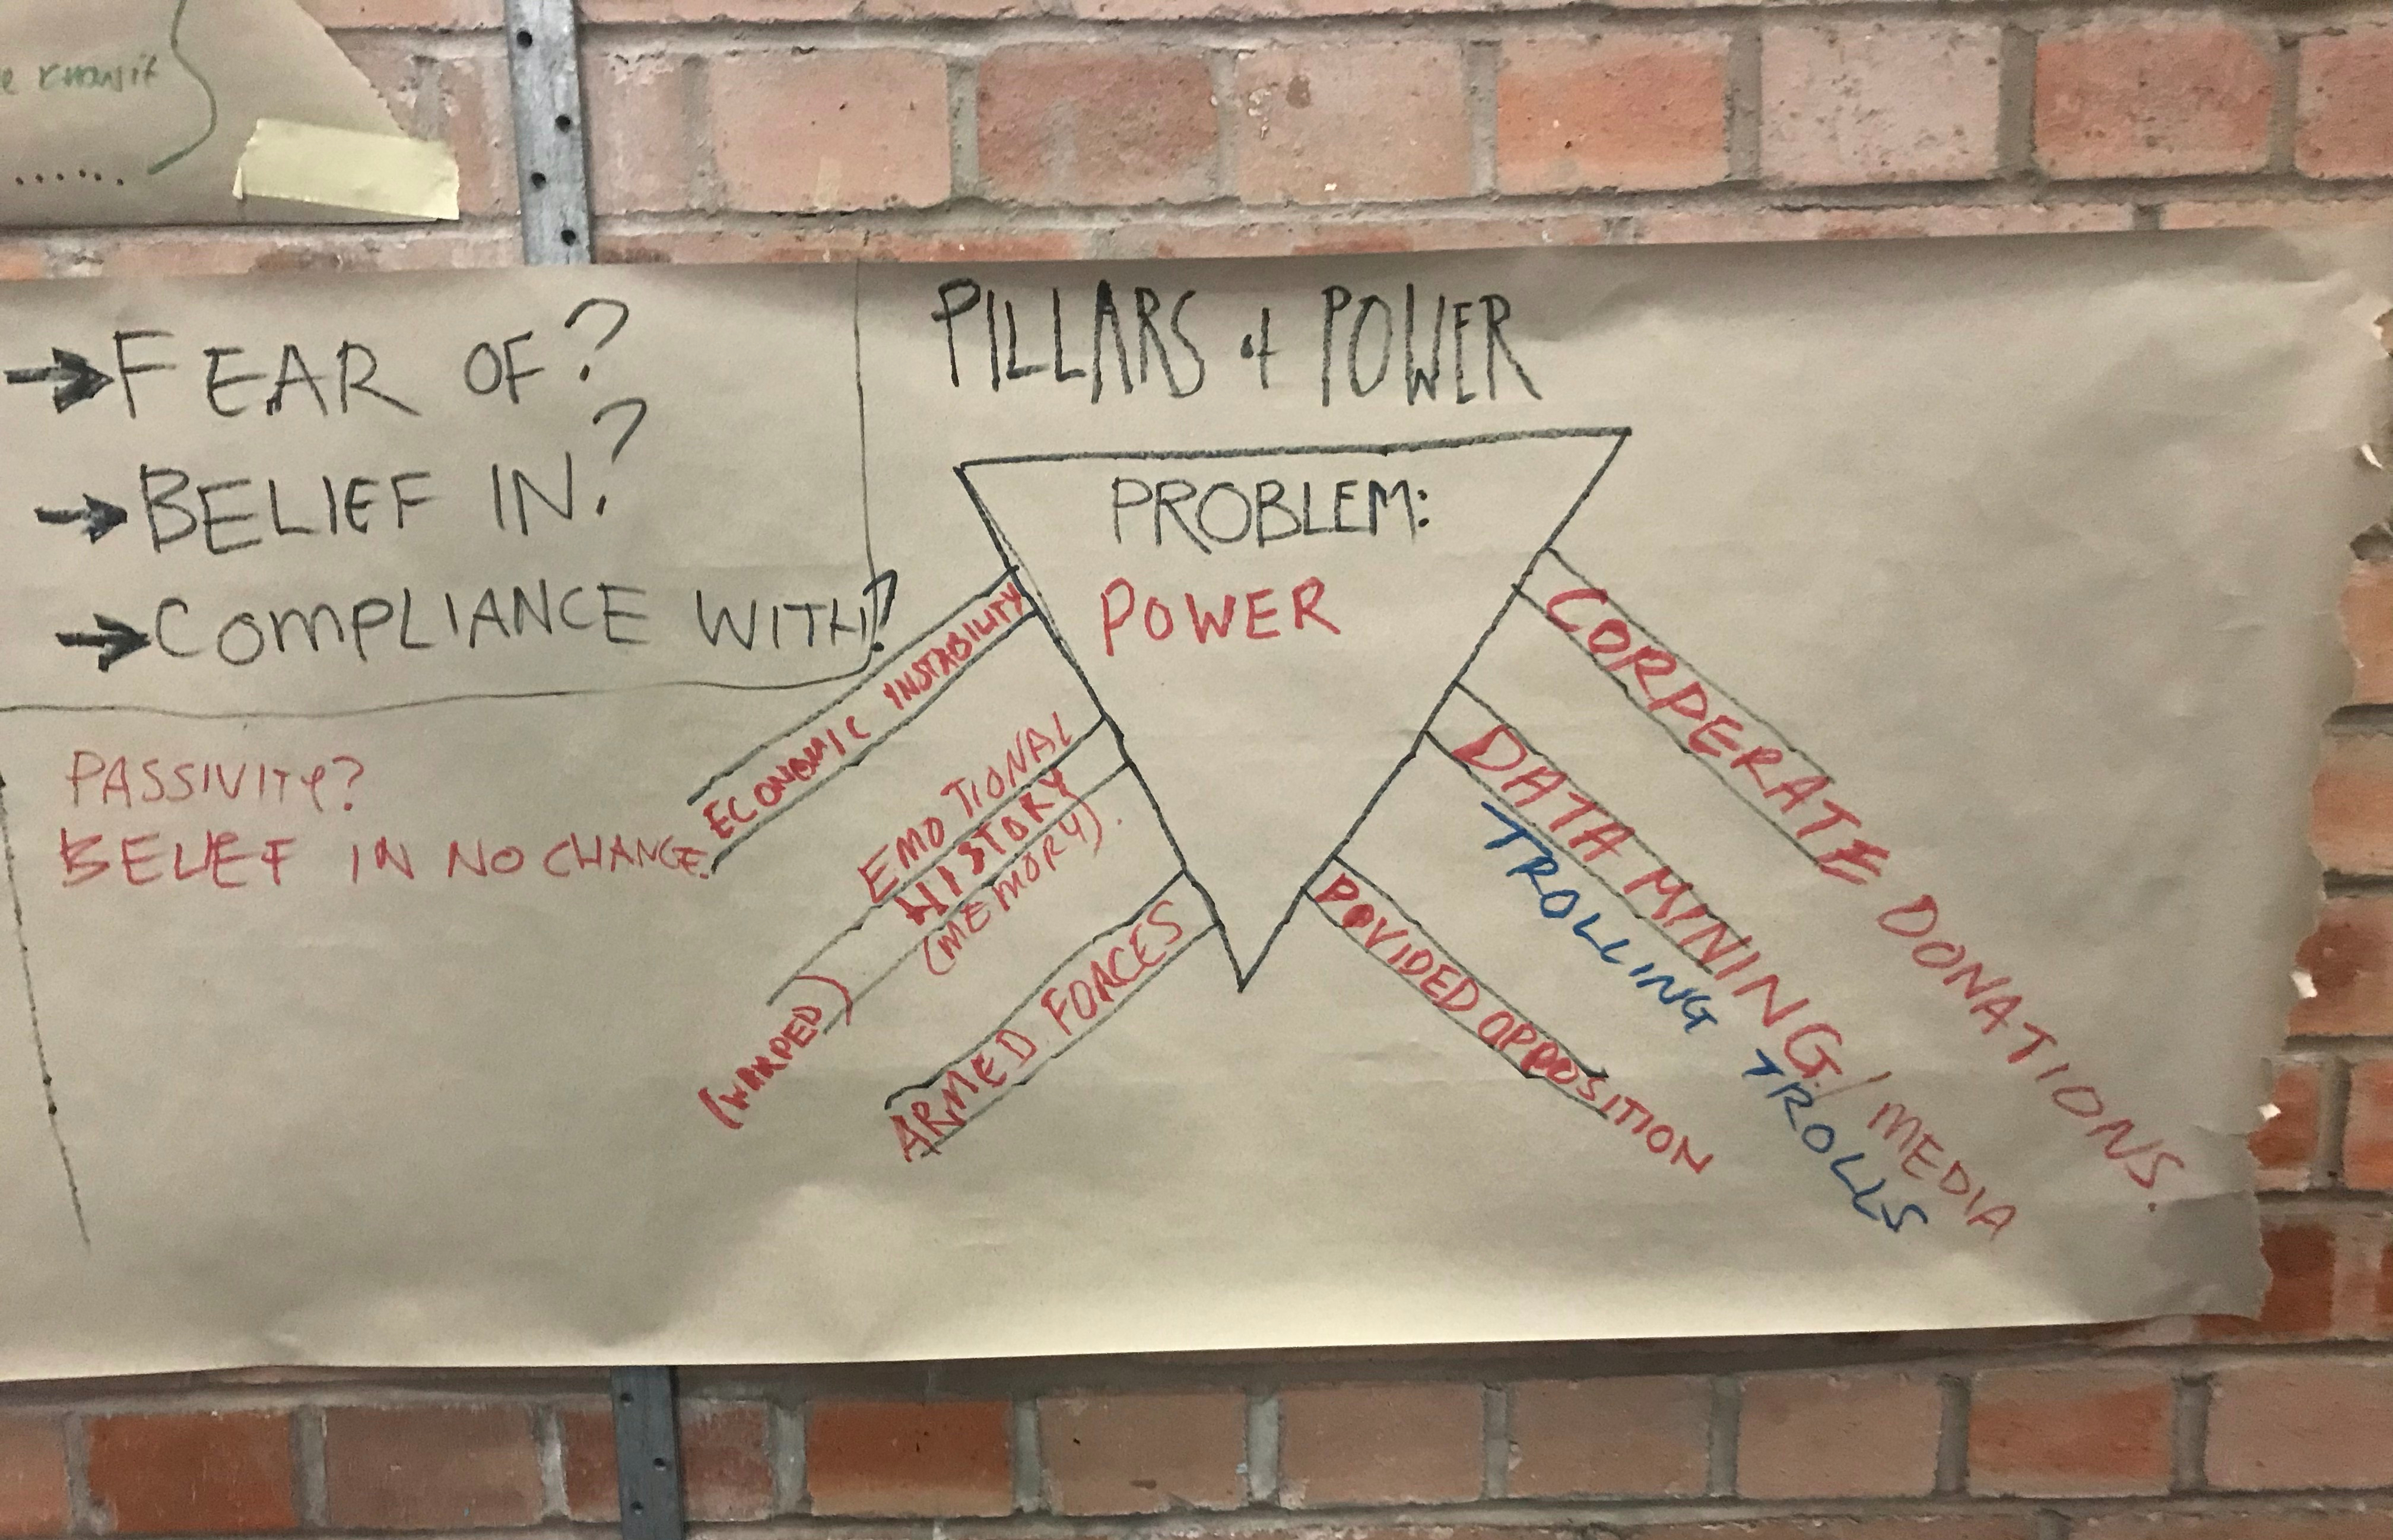 transit
......
PILLARS of POWER
→ FEAR OF?
→ BELIEF IN?
→ COMPLIANCE WITH?
PROBLEM:
POWER
PASSIVITY?
BELIEF IN NO CHANGE.
ECONOMIC INSTABILITY
EMOTIONAL
HISTORY
(MEMORY).
(WARPED)
ARMED FORCES
CORPERATE DONATIONS.
DATA MINING/MEDIA
TROLLING TROLLS
OPPOSITION